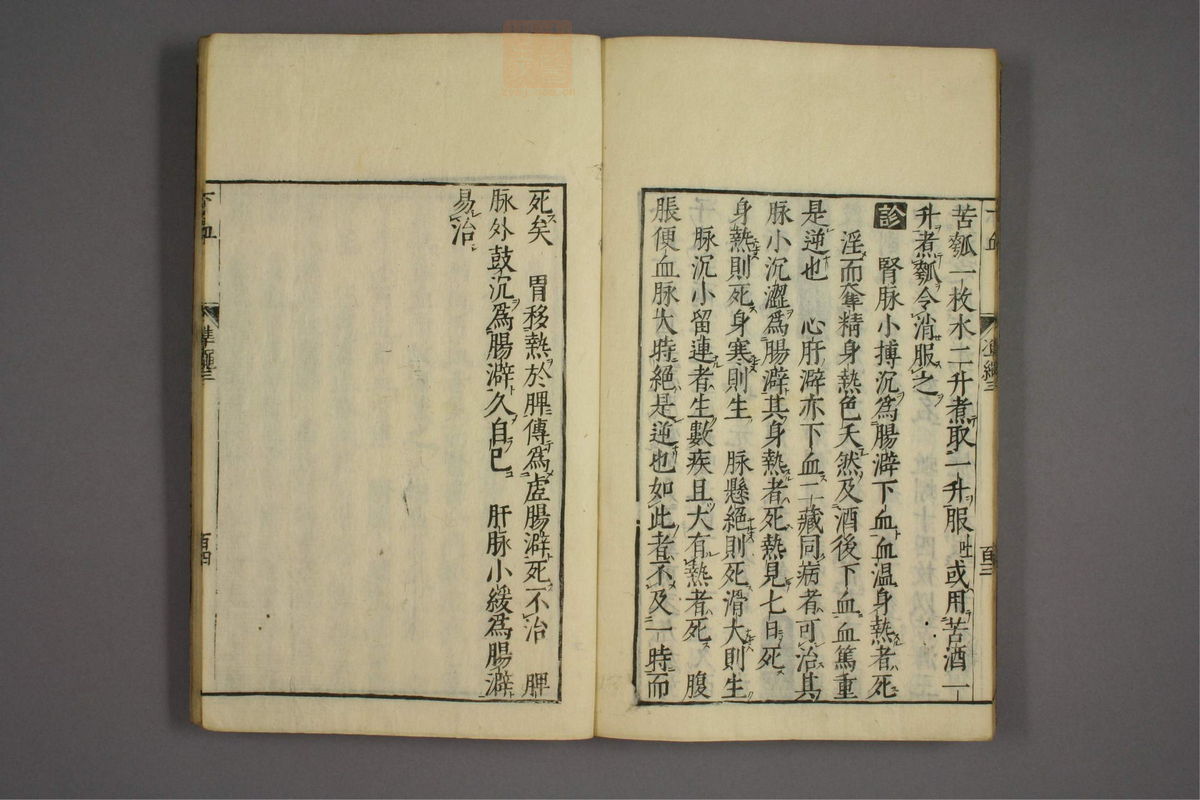 苦瓠一枚水二升煮取一升服吐或用苦酒一
升煮瓠令消服之
診 腎脉小搏沉爲腸澼下血血温身熱者死
淫而奪精身熱色夭然及酒後下血血篤重
是逆也 心肝澼亦下血二藏同病者可治其
脉小沉澀爲腸澼其身熱者死熱見七日死
身熱則死身寒則生 脉懸絕則死滑大則生
脉沉小留連者生數疾且大有熱者死 腹
脹便血脉大時絕是逆也如此者不及一時而
百三
死矣 胃移熱於脾傳爲虛腸澼死不治 脾
脉外鼓沉爲腸澼久自已 肝脉小緩爲腸澼
易治
下血
準繩三
百四